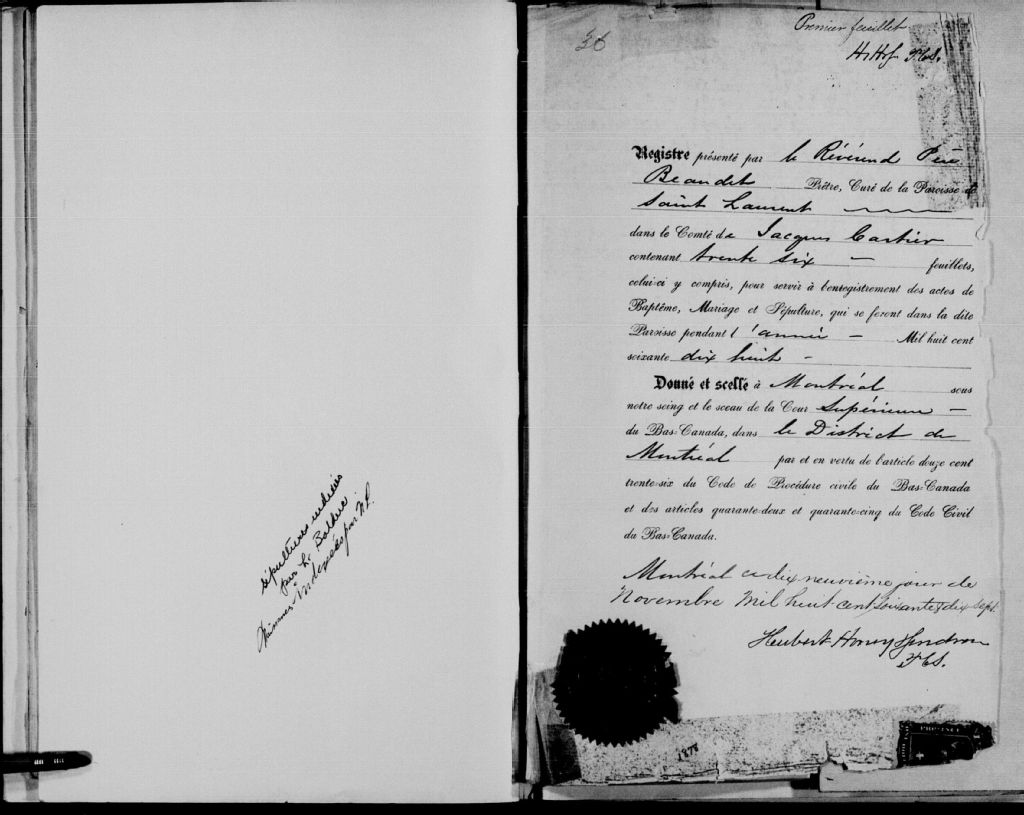 sépultures indexées
par L. Bolduc
36
Premier feuillet
Registre présenté par le Révérend Père
Beaudet Prêtre, Curé de la Paroisse de
Saint Laurent
dans le Comté de Jacques Cartier
contenant trente six feuillets,
celui-ci y compris, pour servir à l'enregistrement des actes de
Baptême, Mariage et Sépulture, qui se feront dans la dite
Paroisse pendant l'année Mil huit cent
soixante dix huit
Donné et scellé à Montréal sous
notre seing et le sceau de la Cour Supérieure
du Bas-Canada, dans le District de
Montréal par et en vertu de l'article douze cent
trente-six du Code de Procédure civile du Bas-Canada
et des articles quarante-deux et quarante-cinq du Code Civil
du Bas-Canada.
Montréal ce dix neuvième jour de
Novembre Mil huit cent soixante & dix-sept.
Honey Gendron
1878
PROVINCE